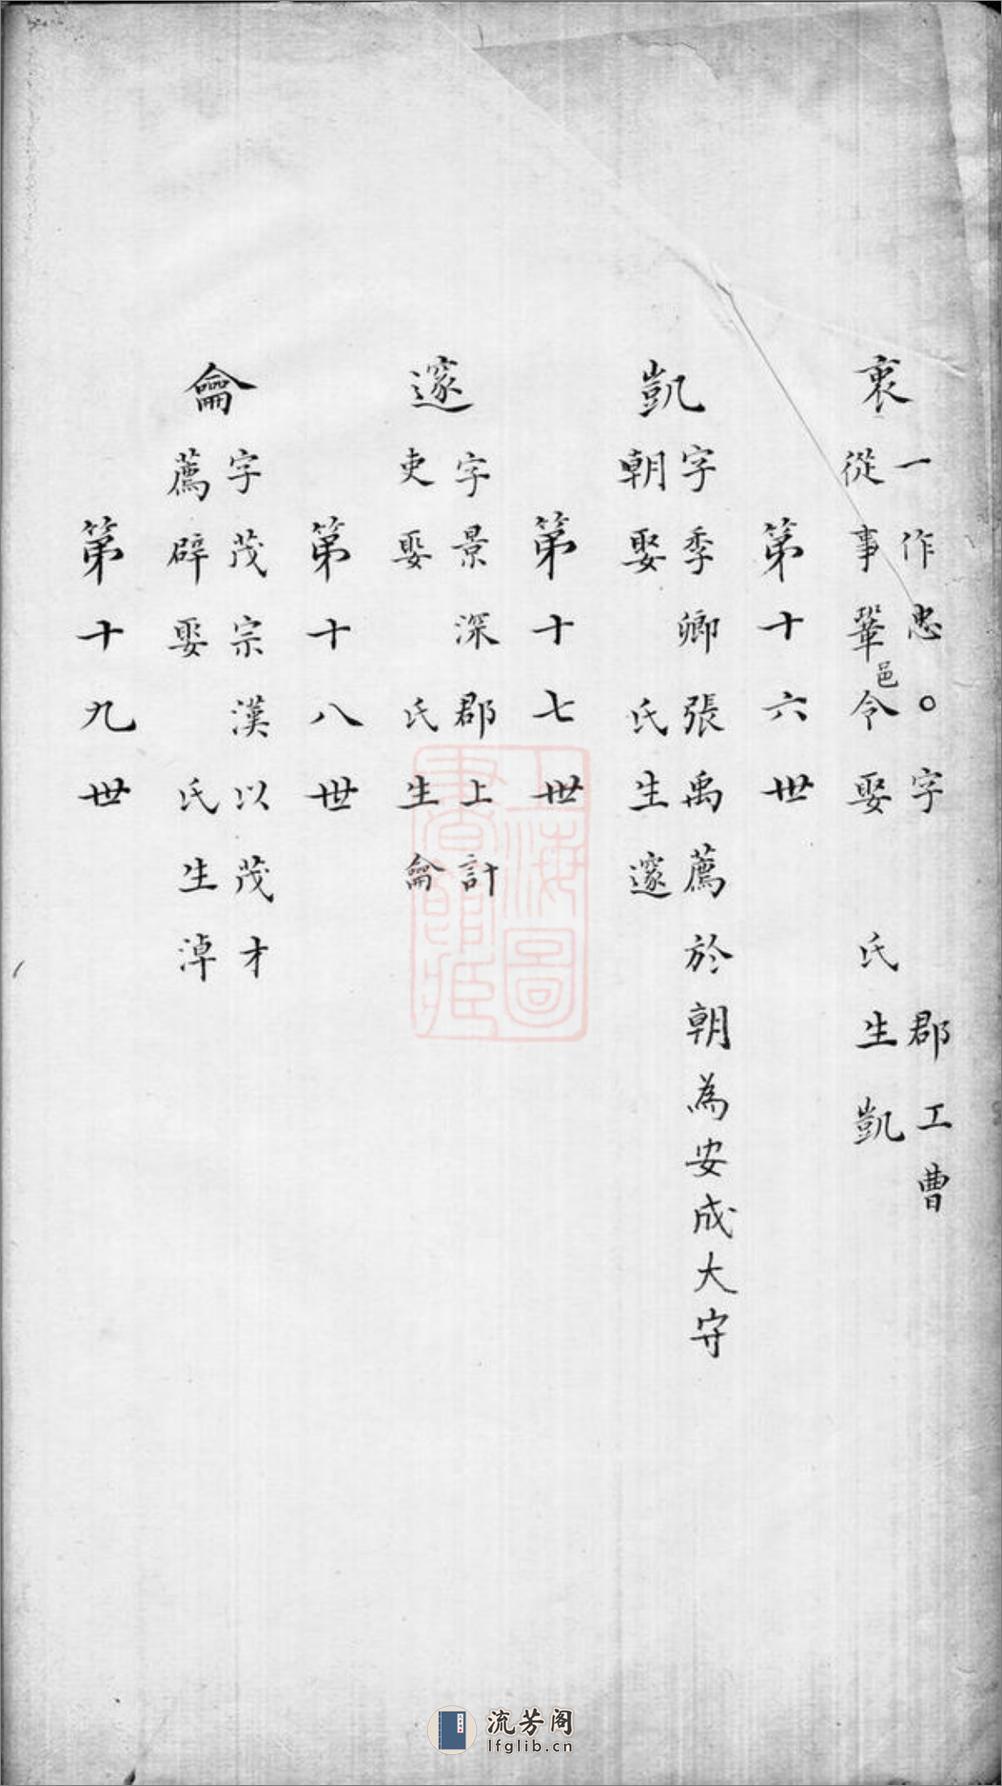 衷
一作忠。字　郡工曹
從事鞏邑令娶　氏生凱
第十六世
凱
字季卿張禹薦於朝為安成大守
朝娶　氏生邃
第十七世
邃
字景深郡上計
吏娶　氏生龠
第十八世
龠
字茂宗漢以茂才
薦辟娶　氏生淖
第十九世
上海圖
書館藏
流芳阁
lfglib.cn